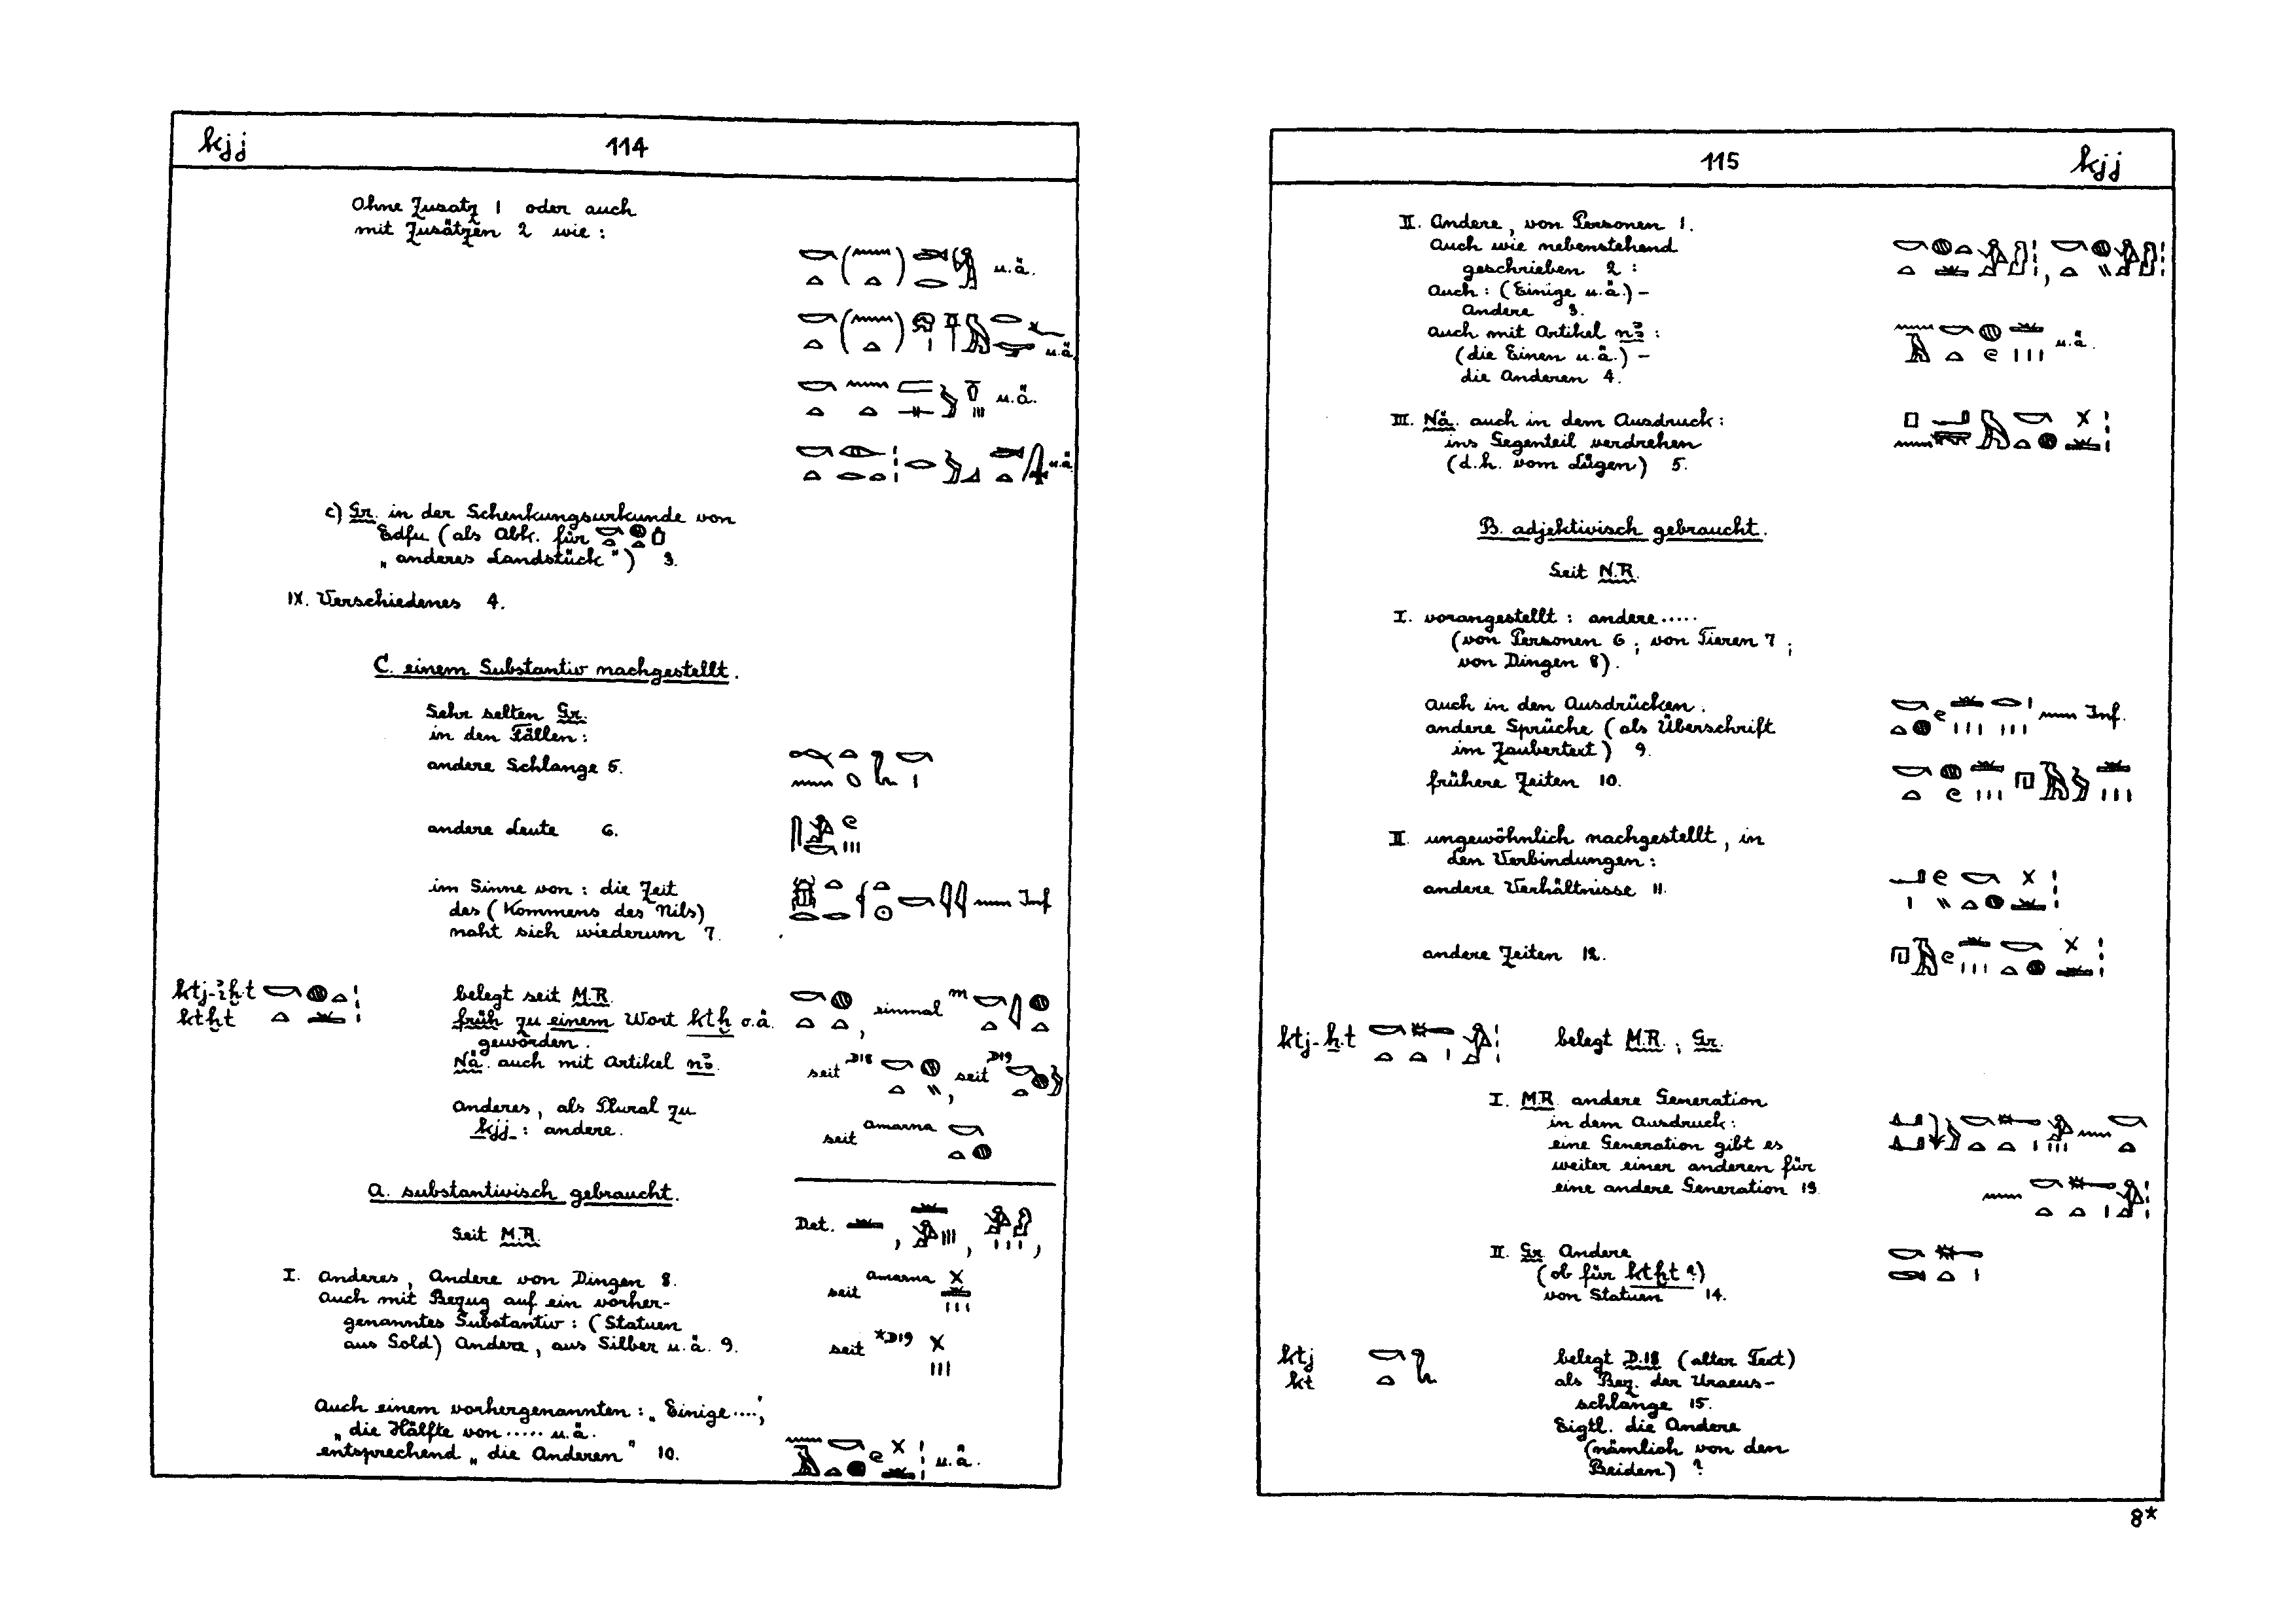 kjj 114
Ohne Zusatz 1 oder auch
mit Zusätzen 2 wie:
u.ä.
u.ä.
u.ä.
u.ä.
c) Gr. in der Schenkungsurkunde von
Edfu (als Abk. für
„anderes Landstück“) 3.
IX. Verschiedenes 4.
C. einem Substantiv nachgestellt.
Sehr selten Gr.
in den Fällen:
andere Schlange 5.
andere Leute 6.
im Sinne von: die Zeit
des (Kommens des Nils)
naht sich wiederum 7.
Inf
ktj-iḫt
ktḫt
belegt seit M.R.
früh zu einem Wort ktḫ o.ä.
geworden.
Nä. auch mit Artikel nꜣ.
anderes, als Plural zu
kjj: andere.
, einmal m
seit D18 , seit D19
seit Amarna
A. substantivisch gebraucht.
Seit M.R.
Det. , , ,
seit Amarna
seit *D19
I. Anderes, Andere von Dingen 8.
Auch mit Bezug auf ein vorher-
genanntes Substantiv: (Statuen
aus Gold) Andere, aus Silber u.ä. 9.
Auch einem vorhergenannten: „Einige ....“,
„die Hälfte von ..... u.ä.
entsprechend „die Anderen“ 10.
u.ä.
115 kjj
II. Andere, von Personen 1.
Auch wie nebenstehend
geschrieben 2:
Auch: (Einige u.ä.) –
Andere 3.
auch mit Artikel nꜣ:
(die Einen u.ä.) –
die Anderen 4.
u.ä.
III. Nä. auch in dem Ausdruck:
ins Gegenteil verdrehen
(d.h. vom Lügen) 5.
B. adjektivisch gebraucht.
Seit N.R.
I. vorangestellt: andere .....
(von Personen 6; von Tieren 7;
von Dingen 8).
auch in den Ausdrücken.
andere Sprüche (als Überschrift
im Zaubertext) 9.
Inf.
frühere Zeiten 10.
II. ungewöhnlich nachgestellt, in
den Verbindungen:
andere Verhältnisse 11.
andere Zeiten 12.
ktj-ẖ.t
belegt M.R.; Gr.
I. M.R. andere Generation
in dem Ausdruck:
eine Generation gibt es
weiter einer anderen für
eine andere Generation 13.
II. Gr. Andere
(ob für ktḫt?)
von Statuen 14.
ktj
kt
belegt D.18 (alter Text)
als Bez. der Uraeus-
schlange 15.
Eigtl. die Andere
(nämlich von den
Beiden)?
8*